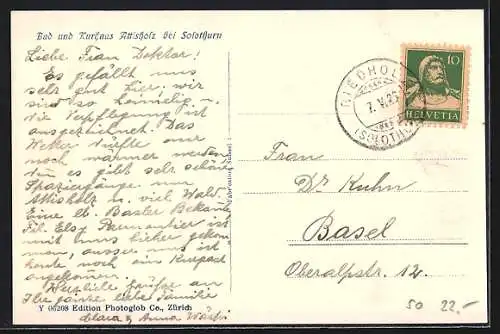 Bad und Kurhaus Attisholz bei Solothurn
Liebe Frau Doktor!
Es gefällt uns
sehr gut hier, wir
sind so heimelig u.
die Verpflegung ist
ausgezeichnet. Das
Wetter dürfte nur
noch wärmer werden
Nun es gibt sehr schöne
Spaziergänge um
Attisholz u. viel Wald.
Eine lb. Basler Bekannte
Frl. Else ist
mit uns hieher gekom-
men, ausser uns ist
heute noch ein Kurgast
angekommen.
Herzliche Grüsse an
Ihre ganze liebe Familie
Clara & Anna
Y 06208 Edition Photoglob Co., Zürich
NIEDHOLZ
7.V.25
(SOLOTH
10
HELVETIA
Frau
Dr Kuhn
Basel
Oberalpstr. 12.
50 22.-